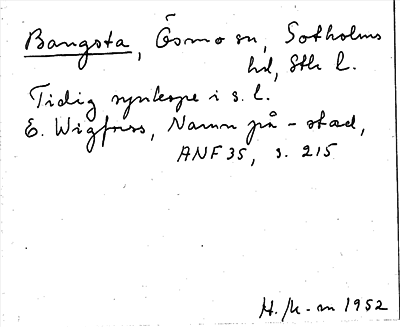 Bangsta, Ösmo sn, Sotholms
hd, Sth l.
Tidig synkope i s. l.
E. Wigforss, Namn på -stad,
ANF 35, s. 215
H. K-m 1952